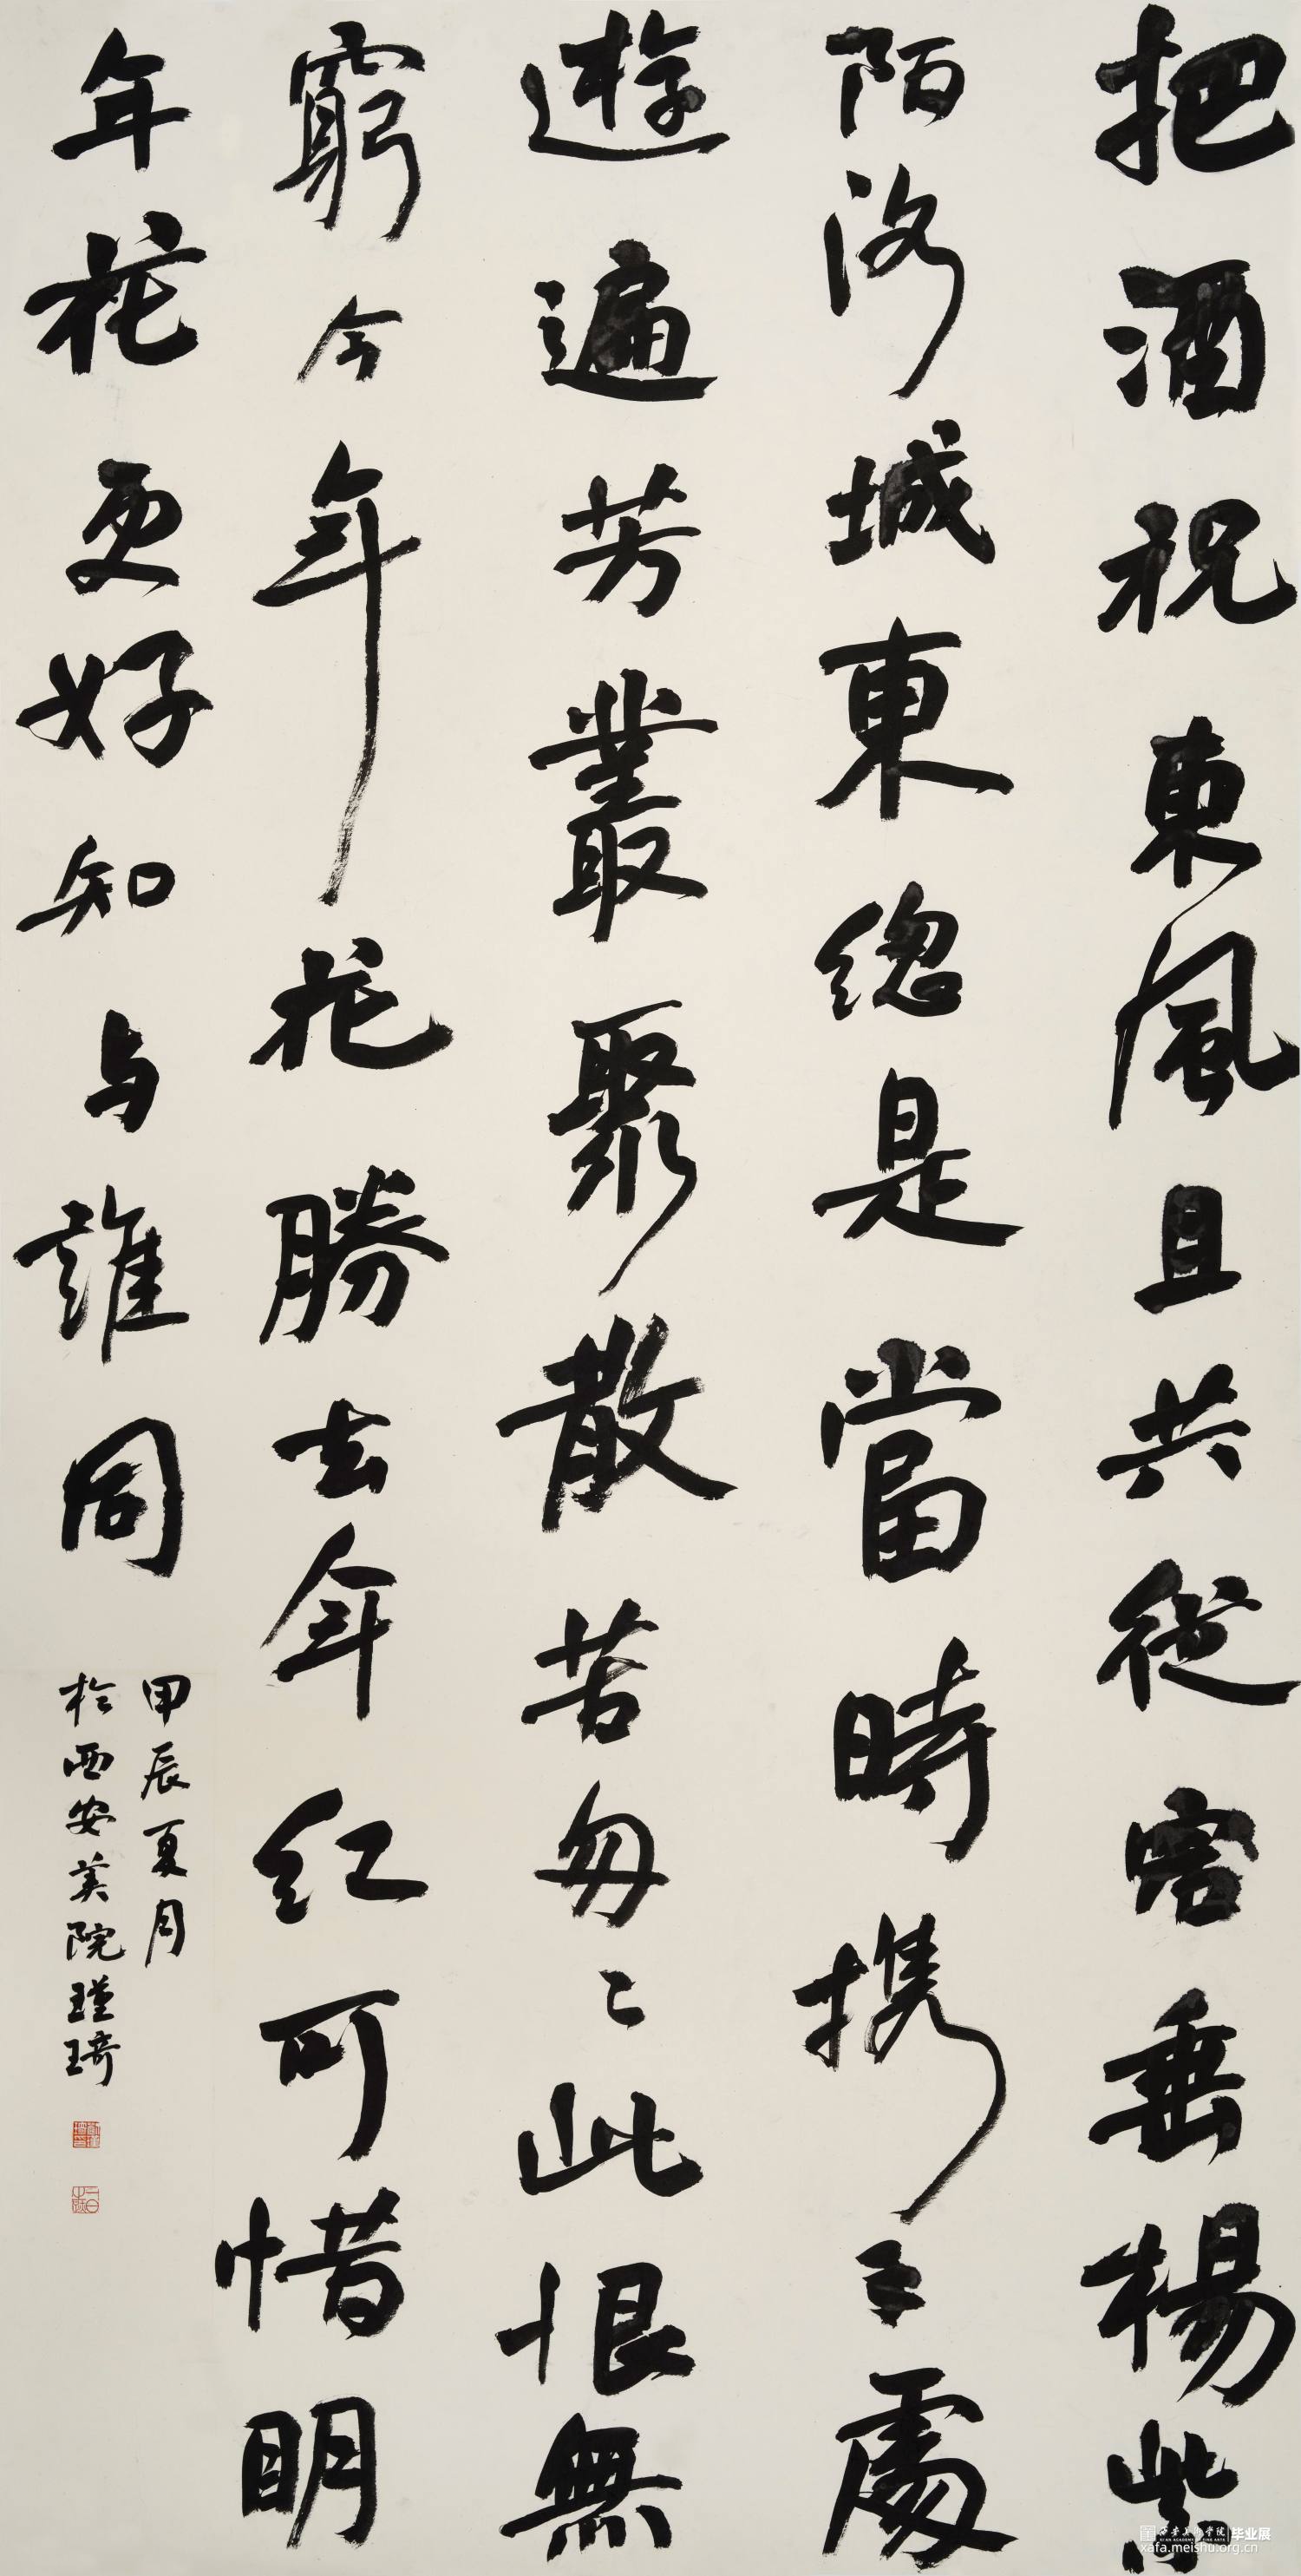 把酒祝東風且共從容垂楊紫
陌洛城東總是當時携手處
遊遍芳叢聚散苦匆〻此恨無
窮今年花勝去年紅可惜明
年花更好知与誰同
甲辰夏月
於西安美院瑾琦
西安美术学院 毕业展
XI'AN ACADEMY OF FINE ARTS
xafa.meishu.org.cn